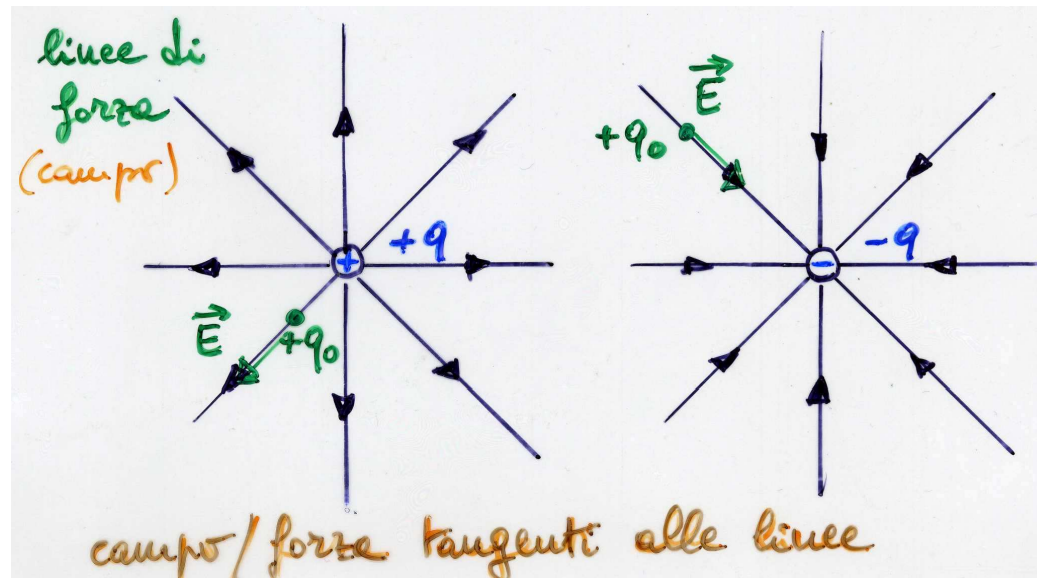 linee di
forza
(campo)
E
+q₀
+
+q
-
-q
E
+q₀
campo/forza tangenti alle linee